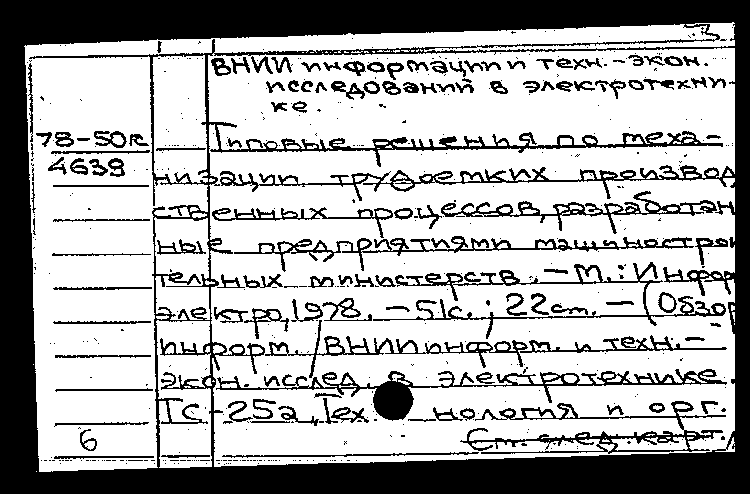 3
ВНИИ информации и техн.-экон.
исследований в электротехни-
ке.
78-50к
Типовые решения по меха-
4639
низации трудоемких производ
ственных процессов, разработан
ные предприятиями машинострои
тельных министерств. - М.: Информ
электро, 1978. - 51с.; 22см. - (Обзор
информ. / ВНИИ информ. и техн.-
экон. исслед. в электротехнике.
ТС-25а, Технология и орг.
6
См. след. карт.